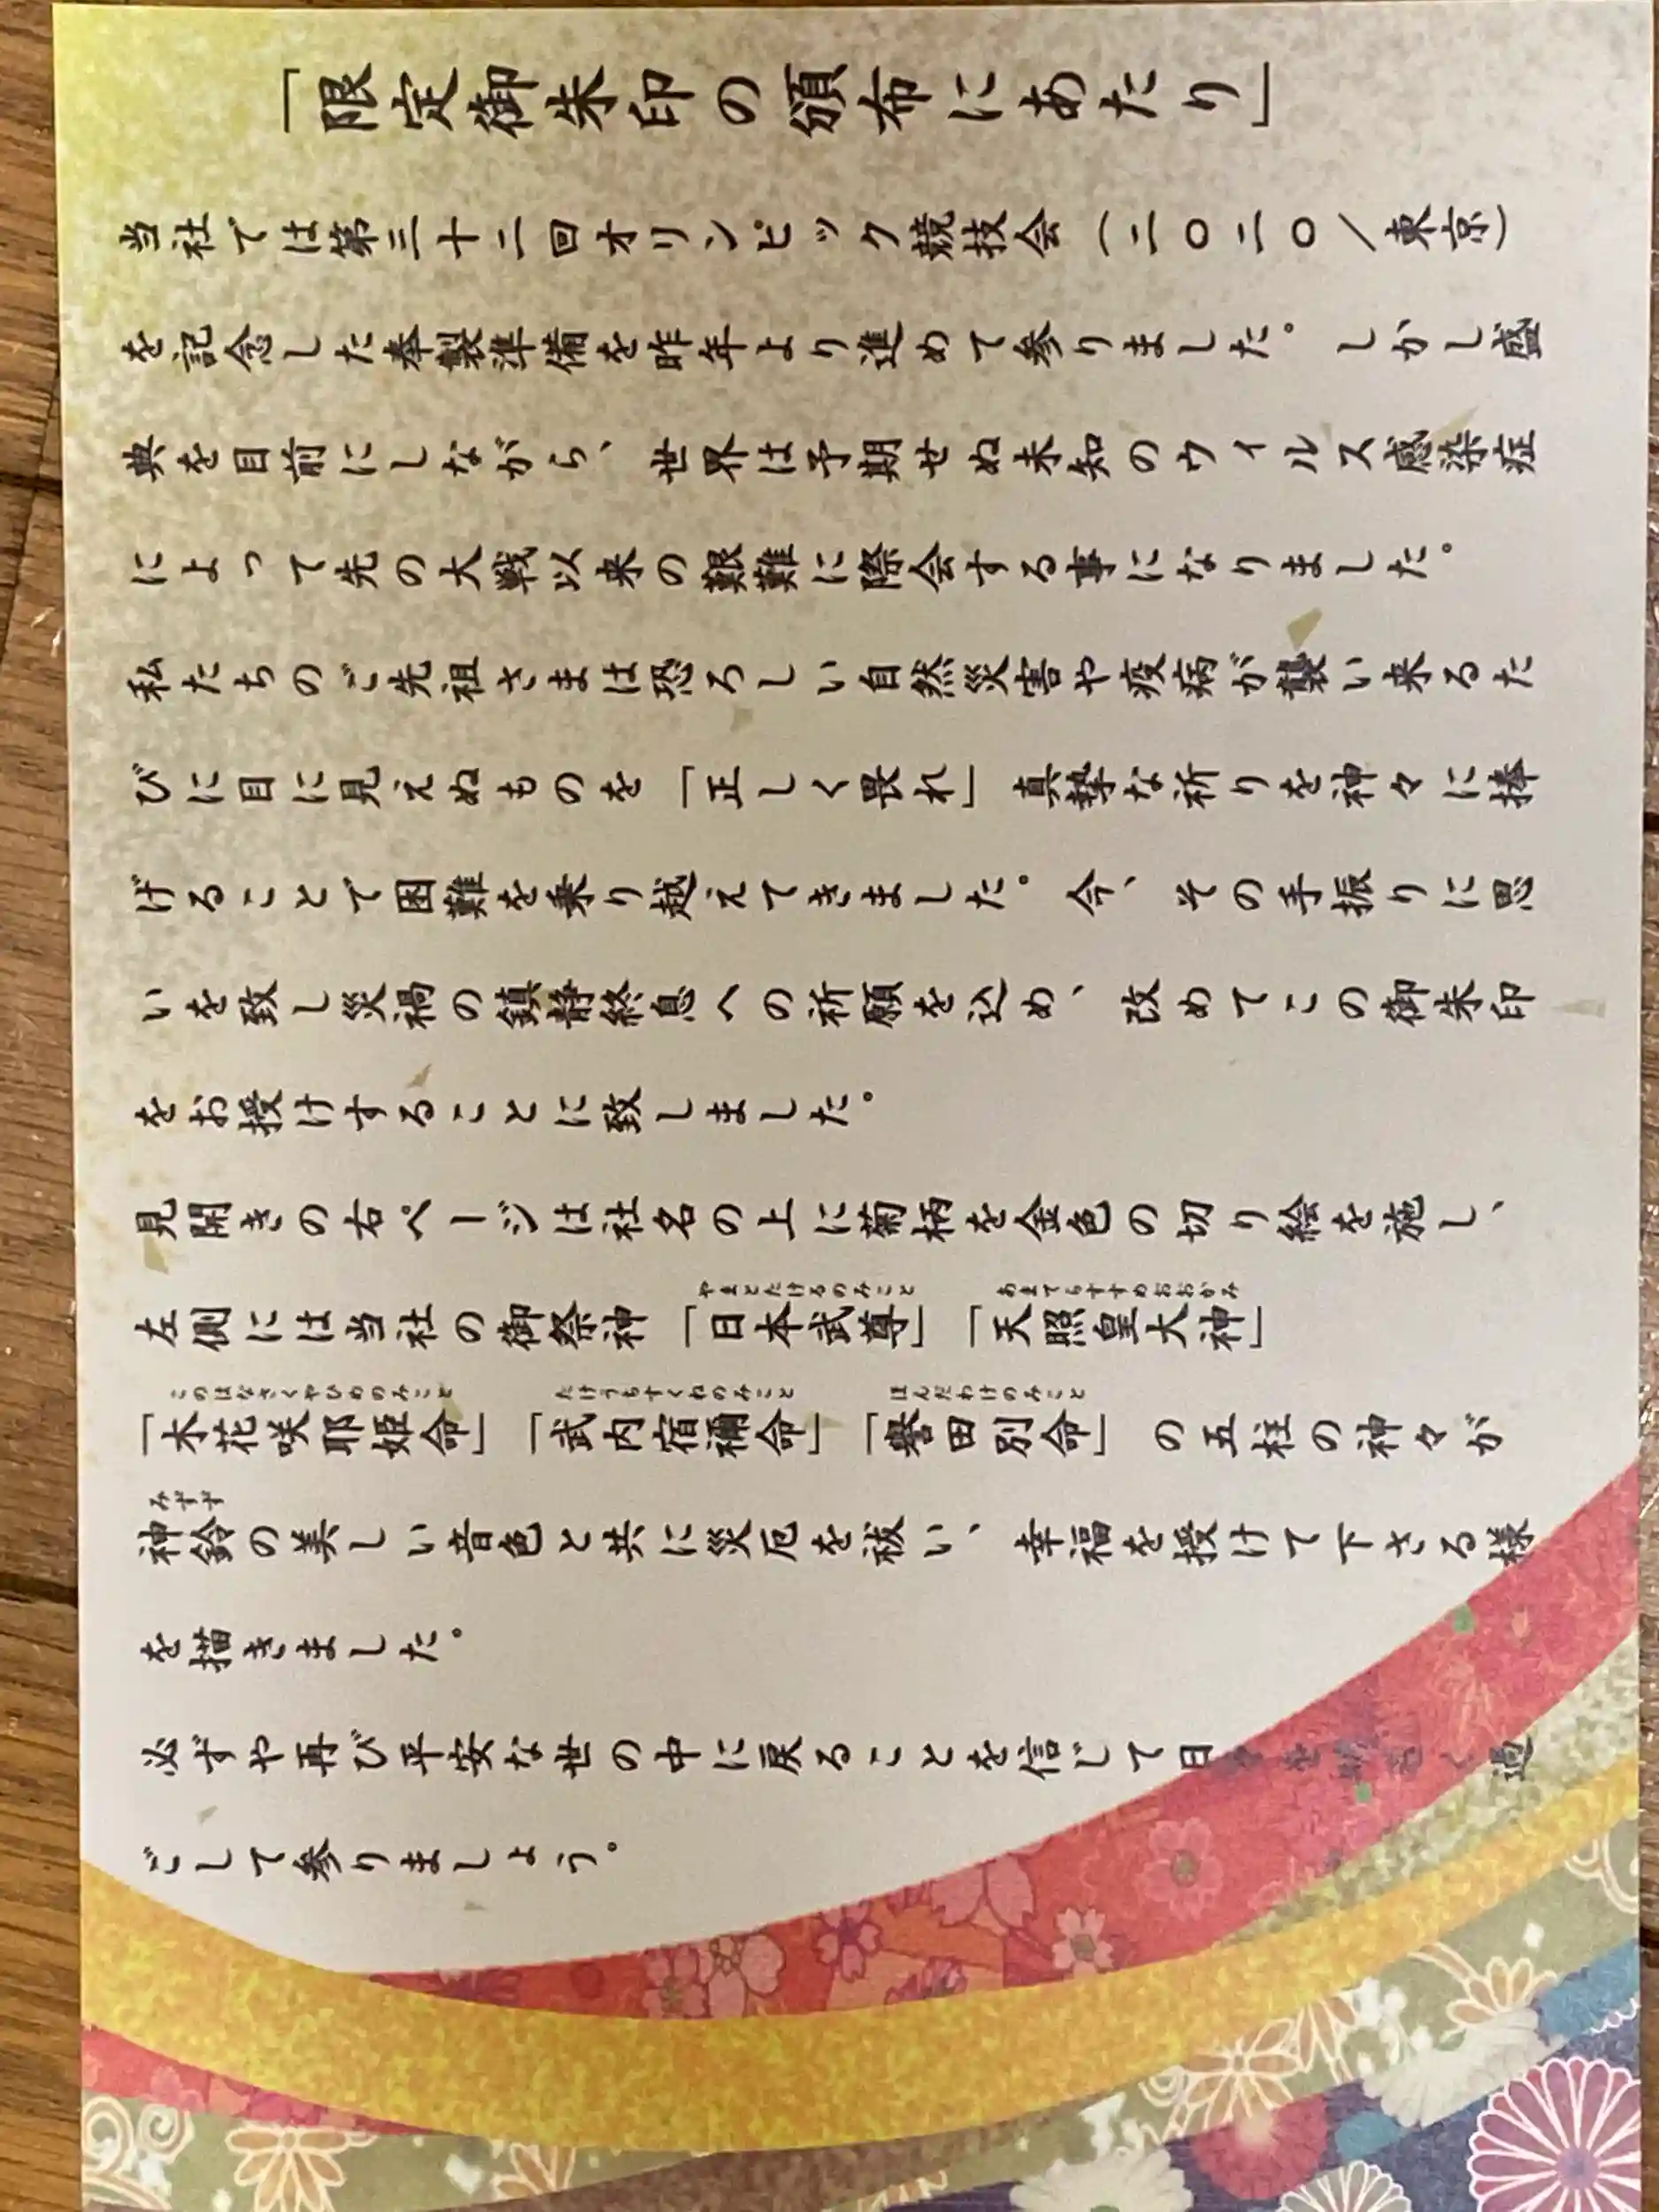 「限定御朱印の頒布にあたり」
当社では第三十二回オリンピック競技会（二〇二〇／東京）
を記念した奉製準備を昨年より進めて参りました。しかし盛
典を目前にしながら、世界は予期せぬ未知のウィルス感染症
によって先の大戦以来の艱難に際会する事になりました。
私たちのご先祖さまは恐ろしい自然災害や疫病が襲い来るた
びに目に見えぬものを「正しく畏れ」真摯な祈りを神々に捧
げることで困難を乗り越えてきました。今、その手振りに思
いを致し災禍の鎮静終息への祈願を込め、改めてこの御朱印
をお授けすることに致しました。
見開きの右ページは社名の上に菊柄を金色の切り絵を施し、
やまとたけるのみこと　あまてらすすめおおかみ
左側には当社の御祭神「日本武尊」「天照皇大神」
このはなさくやひめのみこと　たけうちすくねのみこと　ほんだわけのみこと
「木花咲耶姫命」「武内宿禰命」「誉田別命」の五柱の神々が
みすず
神鈴の美しい音色と共に災厄を祓い、幸福を授けて下さる様
を描きました。
必ずや再び平安な世の中に戻ることを信じて日々を く過
ごして参りましょう。